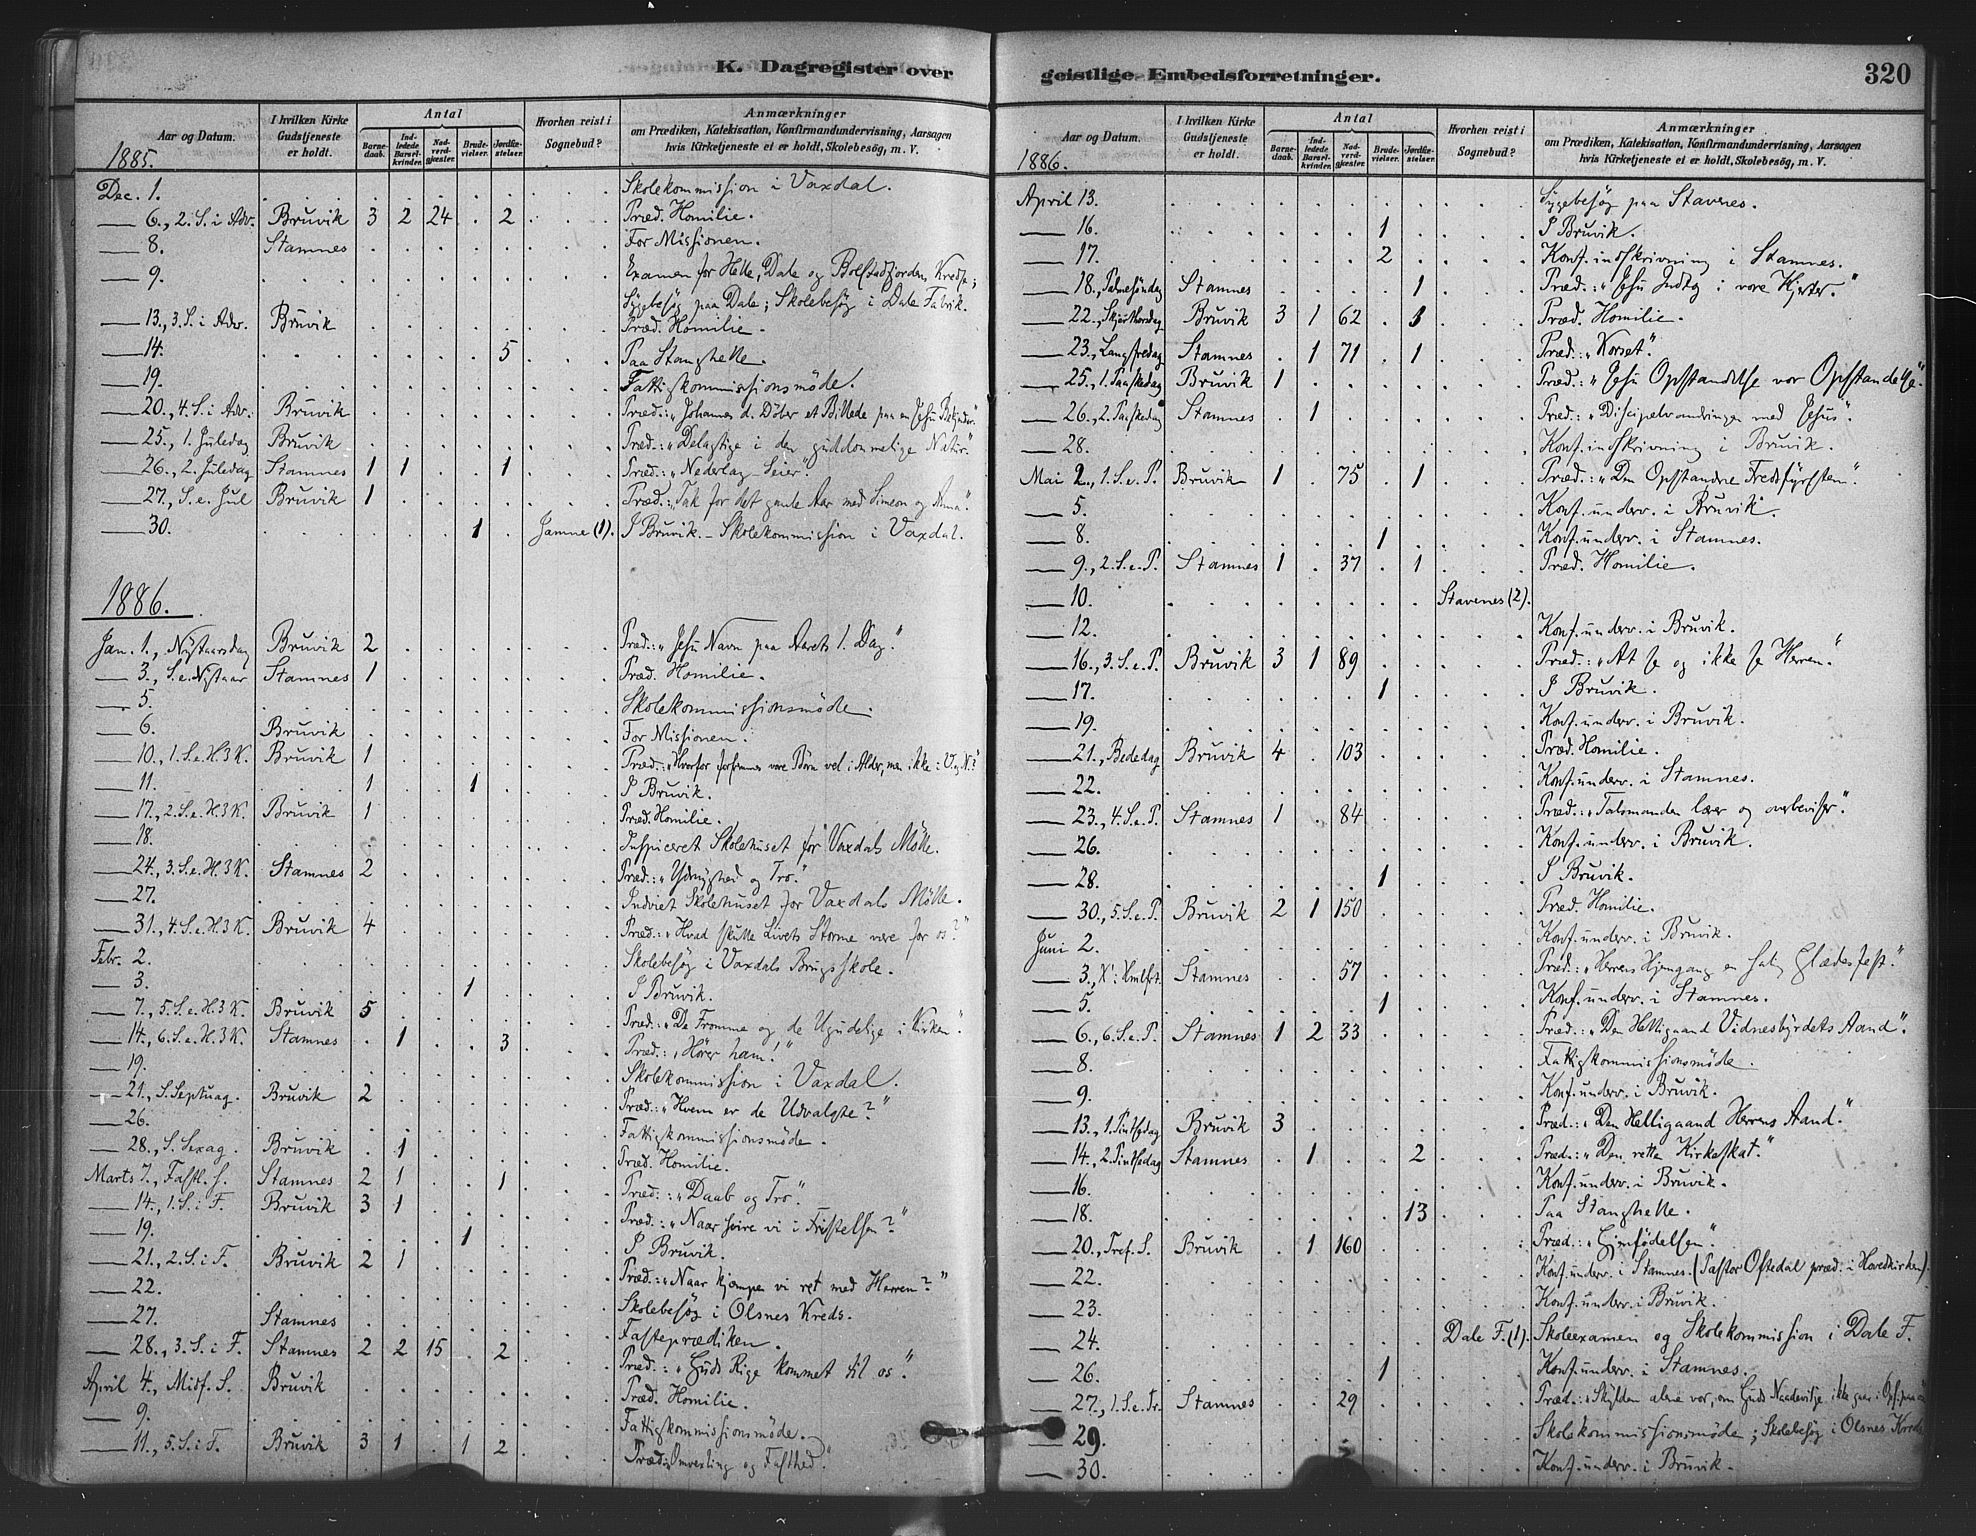 K. Dagregister over geistlige Embedsforretninger. 320
Aar og Datum. I hvilken Kirke Gudstjeneste er holdt. Antal Barnedaab. Indledede Barselkvinder. Nadverdgjæster. Brudevielser. Jordfæstelser. Hvorhen reist i Sognebud? Anmærkninger om Prædiken, Katekisation, Konfirmandundervisning, Aarsagen hvis Kirketjeneste ei er holdt, Skolebesøg, m. V.
1885.
Dec. 1. Skolekommission i Vaxdal.
— 6., 2. S. i Adv. Bruvik 3 2 24 . 2 Præd. Homilie.
— 8. Stamnes For Missionen.
— 9. Examen for Helle, Dale og Bolstadfjordens Kredse;
Sygebesøg paa Dale; Skolebesøg i Dale Fabrik.
— 13., 3. S. i Adv. Bruvik Præd. Homilie.
— 14. 5 Paa Stanghelle.
— 19. Fattigkommissionsmøde.
— 20., 4. S. i Adv. Bruvik Præd.: „Johannes d. Døber et Billede paa en Jesu Bekjender."
— 25., 1. Juledag Bruvik Præd.: „Delagtige i den guddommelige Natur."
— 26., 2. Juledag Stamnes 1 1 . . 1 Præd.: „Nederlag – Seier."
— 27., S. e. Jul Bruvik 1 Præd.: „Tak for det gamle Aar med Simeon og Anna."
— 30. 1 Jamne (1). I Bruvik. – Skolekommission i Vaxdal.
1886.
Jan. 1., Nytaarsdag Bruvik 2 Præd.: „Jesu Navn paa Aarets 1. Dag."
— 3., S. e. Nytaar Stamnes 1 Præd. Homilie.
— 5. Skolekommissionsmøde.
— 6. Bruvik For Missionen.
— 10., 1. S. e. H. 3 K. Bruvik 1 Præd.: „Hvorfor forfremmes vore Børn vel i Alder, men ikke i V. og N.?"
— 11. 1 1 I Bruvik.
— 17., 2. S. e. H. 3 K. Bruvik 1 Præd. Homilie.
— 18. Inspiceret Skolehuset for Vaxdals Mølle.
— 24., 3. S. e. H. 3 K. Stamnes 2 Præd.: „Ydmyghed og Tro."
— 27. Indviet Skolehuset for Vaxdals Mølle.
— 31., 4. S. e. H. 3 K. Bruvik 4 Præd.: „Hvad skulle Livets Storme være for os?"
Febr. 2. Skolebesøg i Vaxdals Brugsskole.
— 3. 1 I Bruvik.
— 7., 5. S. e. H. 3 K. Bruvik 5 Præd.: „De Fromme og de Ugudelige i Kirken."
— 14., 6. S. e. H. 3 K. Stamnes . 1 . . 3 Præd.: „Hører ham!"
— 19. Skolekommission i Vaxdal.
— 21., S. Septuag. Bruvik 2 Præd.: „Hvem er de Udvalgte?"
— 26. Fattigkommissionsmøde.
— 28., S. Sexag. Bruvik . 1 Præd. Homilie.
Marts 7., Fastl. S. Stamnes 2 1 . . 1 Præd.: „Daab og Tro."
— 14., 1. S. i F. Bruvik 3 1 Præd.: „Naar seire vi i Fristelsen?"
— 19. 1 I Bruvik.
— 21., 2. S. i F. Bruvik 2 1 Præd.: „Naar kjæmpe vi ret med Herren?"
— 22. Skolebesøg i Olsnes Kreds.
— 27. Stamnes Fasteprædiken.
— 28., 3. S. i F. Stamnes 2 2 15 . 2 Præd.: „Guds Rige kommet til os."
April 4., Midf. S. Bruvik Præd. Homilie.
— 9. Fattigkommissionsmøde.
— 11., 5. S. i F. Bruvik 3 1 . 1 2 Præd.: „Omvexling og Fasthed."
Aar og Datum. I hvilken Kirke Gudstjeneste er holdt. Antal Barnedaab. Indledede Barselkvinder. Nadverdgjæster. Brudevielser. Jordfæstelser. Hvorhen reist i Sognebud? Anmærkninger om Prædiken, Katekisation, Konfirmandundervisning, Aarsagen hvis Kirketjeneste ei er holdt, Skolebesøg, m. V.
1886.
April 13. Sygebesøg paa Stavenes.
— 16. 1 I Bruvik.
— 17. 2 Konf. indskrivning i Stamnes.
— 18., Palmesøndag Stamnes 1 Præd.: „Jesu Indtog i vore Hjerter."
— 22., Skjærthorsdag Bruvik 3 1 62 Præd. Homilie.
— 23., Langfredag Stamnes . 1 71 . 1 Præd.: „Korset."
— 25., 1. Paaskedag Bruvik 1 Præd.: „Jesu Opstandelse vor Opstandelse."
— 26., 2. Paaskedag Stamnes . 1 Præd.: „Discipelvandringen med Jesus."
— 28. Konf. indskrivning i Bruvik.
Mai 2., 1. S. e. P. Bruvik 1 . 75 . 1 Præd.: „Den Opstandne Fredsfyrsten."
— 5. Konf. underv. i Bruvik.
— 8. 1 Konf. underv. i Stamnes.
— 9., 2. S. e. P. Stamnes 1 . 37 . 1 Præd. Homilie.
— 10. Stavenes (2).
— 12. Konf. underv. i Bruvik.
— 16., 3. S. e. P. Bruvik 3 1 89 Præd.: „At se og ikke se Herren."
— 17. 1 I Bruvik.
— 19. Konf. underv. i Bruvik.
— 21., Bededag Bruvik 4 . 103 Præd. Homilie.
— 22. Konf. underv. i Stamnes.
— 23., 4. S. e. P. Stamnes 1 . 84 Præd.: „Talsmanden lærer og overbeviser."
— 26. Konf. underv. i Bruvik.
— 28. 1 I Bruvik.
— 30., 5. S. e. P. Bruvik 2 1 150 Præd. Homilie.
Juni 2. Konf. underv. i Bruvik.
— 3., K: Hmlfrt. Stamnes 57 Præd.: „Herrens Hjemgang en salig Glædesfest."
— 5. 1 Konf. underv. i Stamnes.
— 6., 6. S. e. P. Stamnes 1 2 33 Præd.: „Den Helligaand Vidnesbyrdets Aand."
— 8. Fattigkommissionsmøde.
— 9. Konf. underv. i Bruvik.
— 13., 1. Pintsedag Bruvik 3 Præd.: „Den Helligaand Herrens Aand."
— 14., 2. Pintsedag Stamnes . 1 . . 2 Præd.: „Den rette Kirkeskat."
— 16. Konf. underv. i Bruvik.
— 18. 13 Paa Stanghelle.
— 20., Tref. S. Bruvik . 1 160 Præd.: „Gjenfødelsen."
— 22. Konf. underv. i Stamnes. (Pastor Oftedal præd. i Hovedkirken).
— 23. Konf. underv. i Bruvik.
— 24. Dale F. (1). Skoleexamen og Skolekommission i Dale F.
— 26. 1 Konf. underv. i Stamnes.
— 27., 1. S. e. Tr. Stamnes 29 Præd.: „Skylden alene vor, om Guds Naadevilje ikke gaar i
— 29. Skolekommissionsmøde; Skolebesøg i Olsnes Kreds
— 30. Konf. underv. i Bruvik.